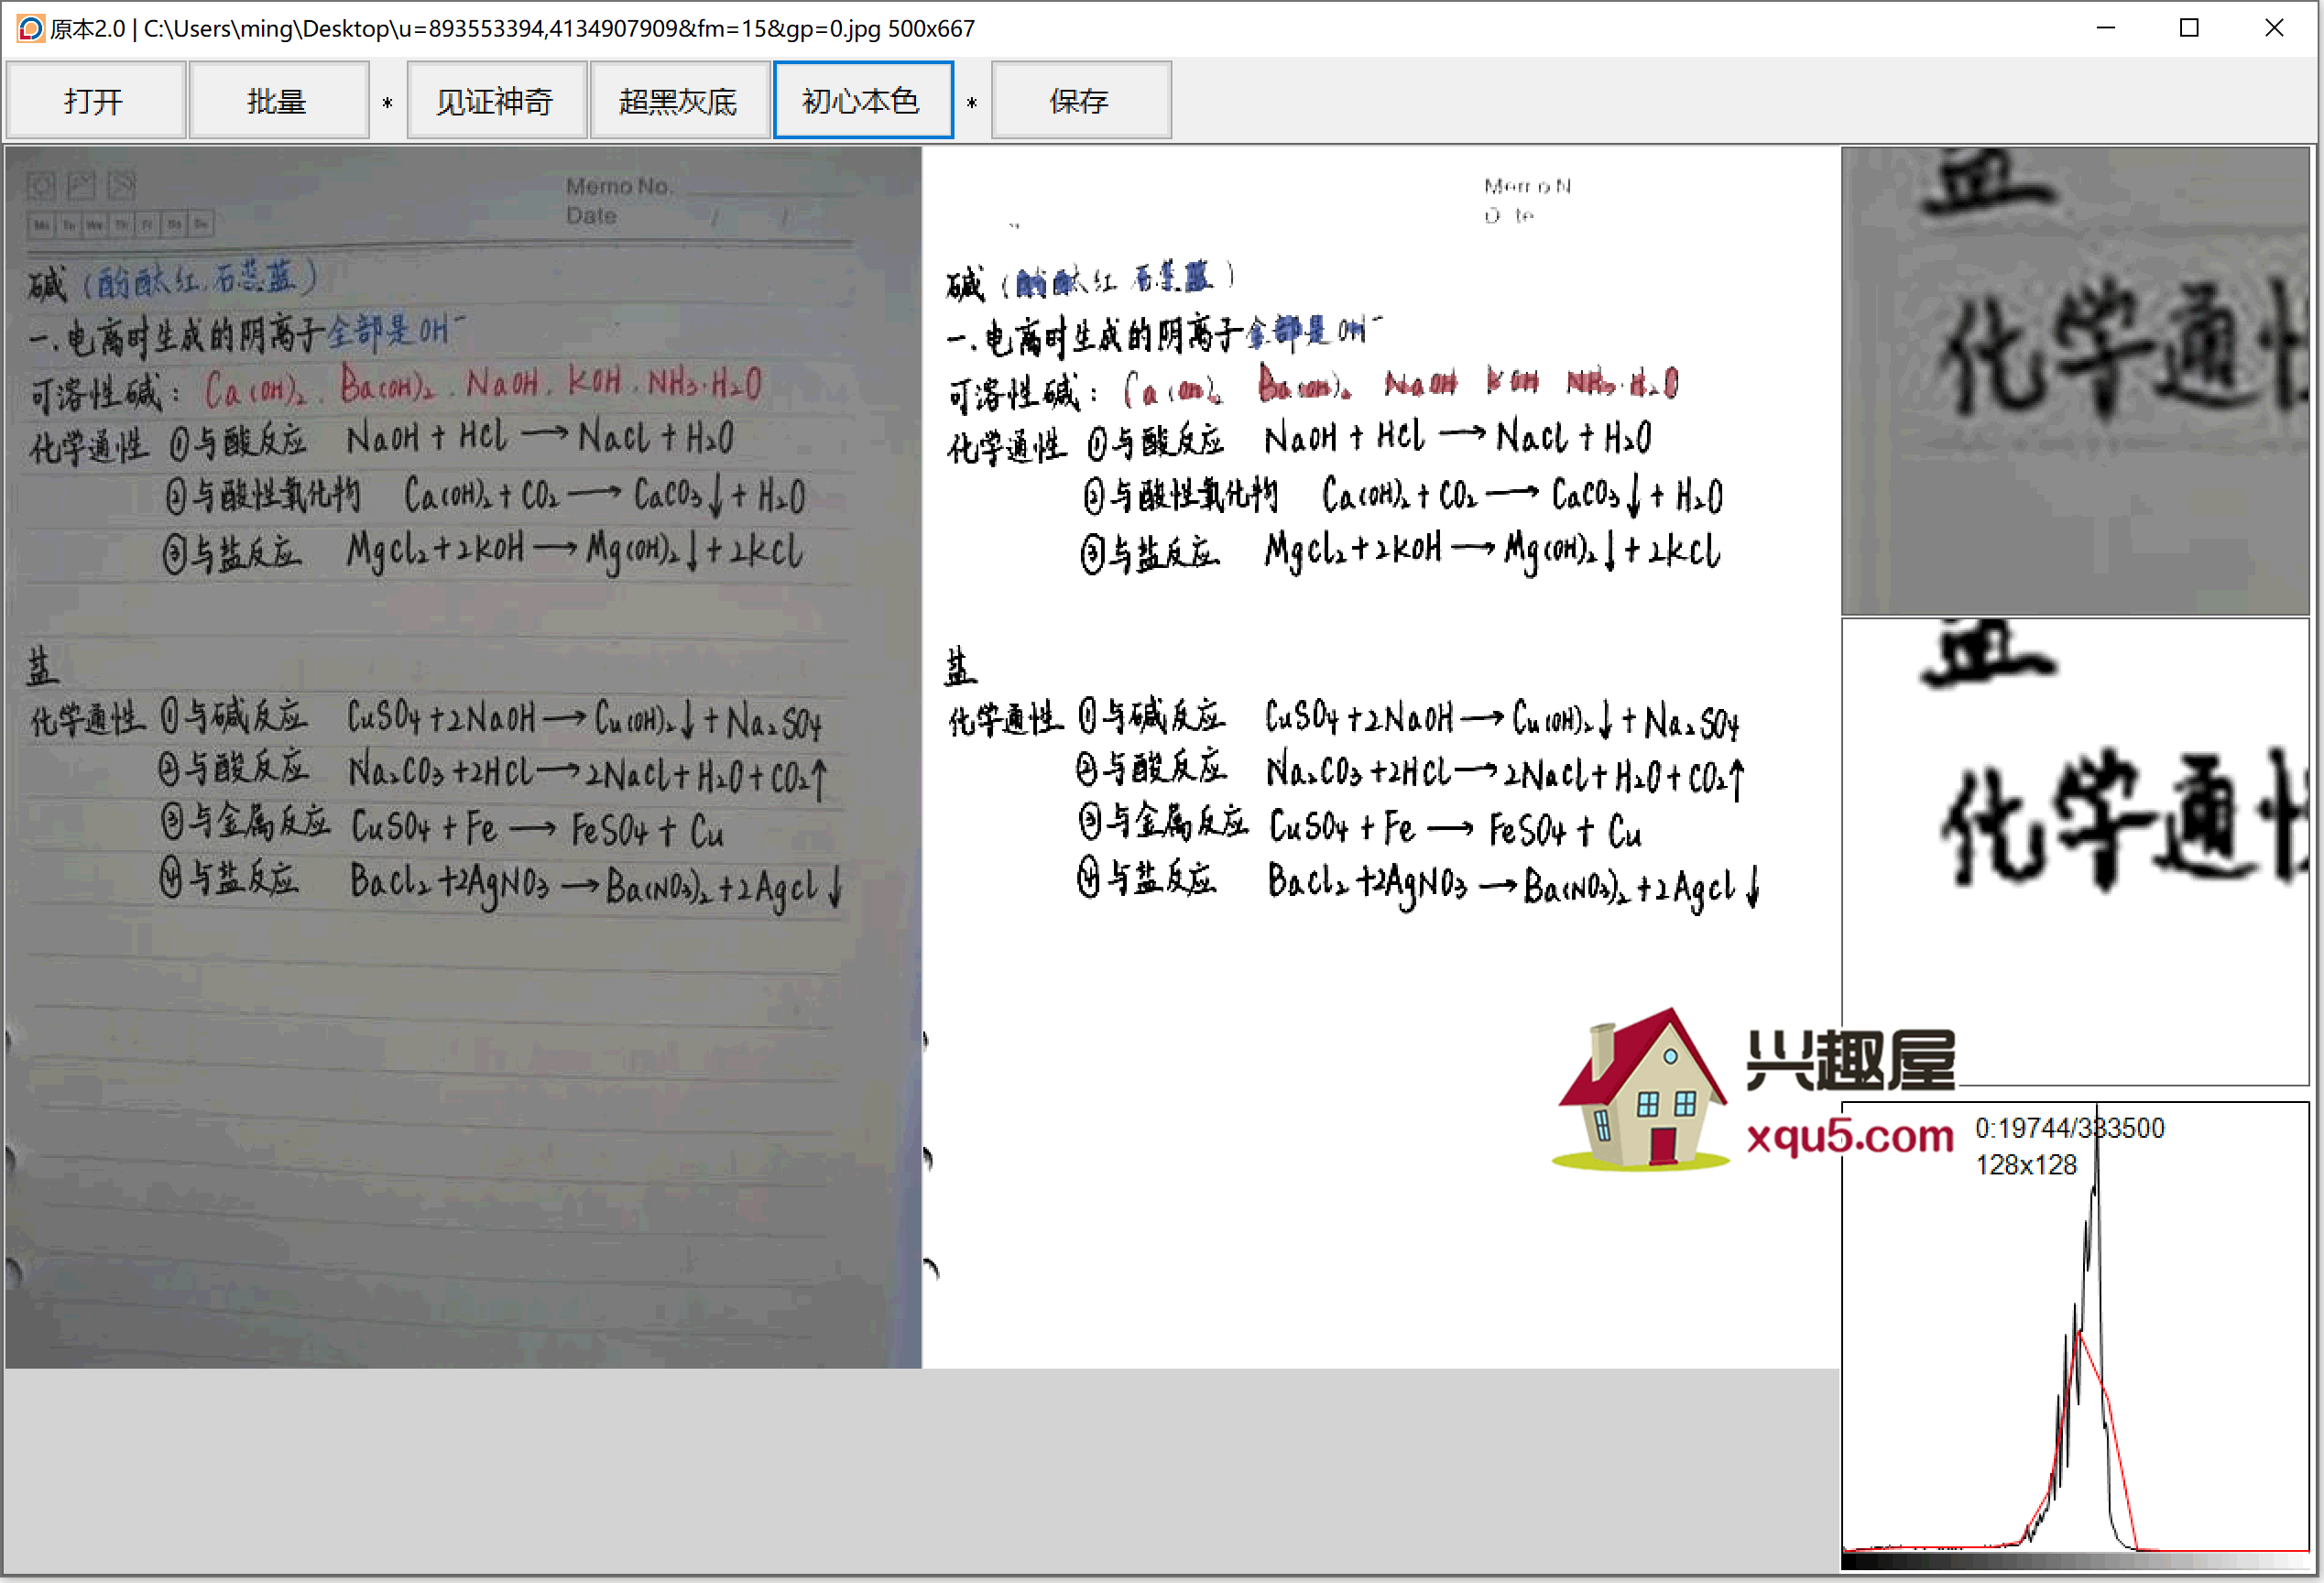 原本2.0 | C:\Users\ming\Desktop\u=893553394,4134907909&fm=15&gp=0.jpg 500x667
打开 批量 * 见证神奇 超黑灰底 初心本色 * 保存
Memo No.
Date / /
Mo Tu We Th Fr Sa Su
碱（酚酞红.石蕊蓝）
一.电离时生成的阴离子全部是OH⁻
可溶性碱：Ca(OH)₂.Ba(OH)₂.NaOH.KOH.NH₃·H₂O
化学通性 ①与酸反应 NaOH + HCl → NaCl + H₂O
②与酸性氧化物 Ca(OH)₂ + CO₂ → CaCO₃↓ + H₂O
③与盐反应 MgCl₂ + 2KOH → Mg(OH)₂↓ + 2KCl
盐
化学通性 ①与碱反应 CuSO₄ + 2NaOH → Cu(OH)₂↓ + Na₂SO₄
②与酸反应 Na₂CO₃ + 2HCl → 2NaCl + H₂O + CO₂↑
③与金属反应 CuSO₄ + Fe → FeSO₄ + Cu
④与盐反应 BaCl₂ + 2AgNO₃ → Ba(NO₃)₂ + 2AgCl↓
Memo N
D te
碱（酚酞红 石蕊蓝）
一.电离时生成的阴离子全部是OH⁻
可溶性碱：Ca(OH)₂ Ba(OH)₂ NaOH KOH NH₃·H₂O
化学通性 ①与酸反应 NaOH + HCl → NaCl + H₂O
②与酸性氧化物 Ca(OH)₂ + CO₂ → CaCO₃↓ + H₂O
③与盐反应 MgCl₂ + 2KOH → Mg(OH)₂↓ + 2KCl
盐
化学通性 ①与碱反应 CuSO₄ + 2NaOH → Cu(OH)₂↓ + Na₂SO₄
②与酸反应 Na₂CO₃ + 2HCl → 2NaCl + H₂O + CO₂↑
③与金属反应 CuSO₄ + Fe → FeSO₄ + Cu
④与盐反应 BaCl₂ + 2AgNO₃ → Ba(NO₃)₂ + 2AgCl↓
盐
化学通性
盐
化学通性
兴趣屋
xqu5.com
0:19744/333500
128x128